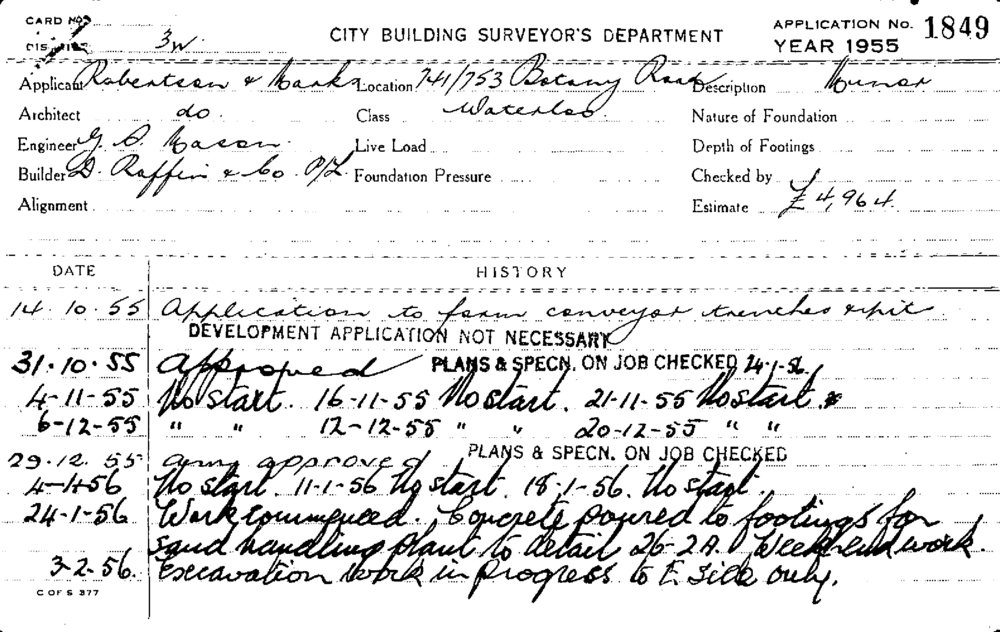 CARD No.
3W.
CITY BUILDING SURVEYOR'S DEPARTMENT
APPLICATION No. 1849
YEAR 1955
Applicant Robertson & Marks Location 741/753 Botany Road Description Minor
Architect do. Class Waterloo Nature of Foundation
Engineer G. O. Live Load Depth of Footings
Builder D. Raffin & Co. P/L Foundation Pressure Checked by
Alignment Estimate £4,964.
DATE HISTORY
14.10.55 Application to form conveyor trenches & pit.
DEVELOPMENT APPLICATION NOT NECESSARY
31.10.55 Approved PLANS & SPECN. ON JOB CHECKED 24-1-56.
4-11-55 No start. 16-11-55 No start. 21-11-55 No start.
6-12-55 " " 12-12-55 " " 20-12-55 " "
29.12.55 approved PLANS & SPECN. ON JOB CHECKED
4-1-56 No start. 11-1-56 No start. 18-1-56. No start.
24-1-56 Work commenced. Concrete poured to footings for
sand handling plant to detail 26-2A. Weekend work.
3-2-56. Excavation work in progress to E. side only.
C OF S 377